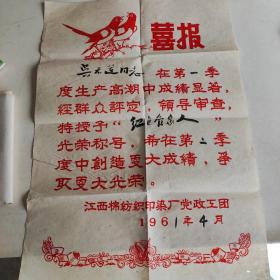 喜报
同志在第一季
度生产高潮中成績显著,
經群众評定,領导审查,
特授予“红色食象人”
光荣称号,希在第二季
度中創造更大成績,爭
取更大光荣。
江西棉纺织印染厂党政工团
1961年4月